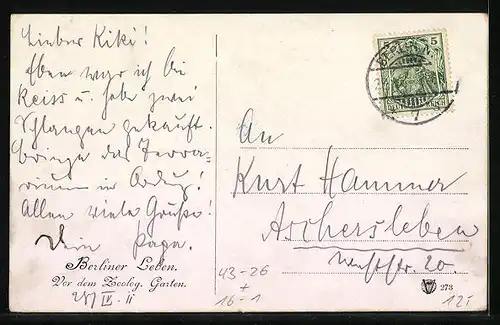 Lieber Kiki!
Eben war ich bei
Reiss u. habe zwei
Schlangen gekauft.
Bringe das Terra-
rium in Ordg!
Allen viele Grüße!
Dein Papa.
Berliner Leben.
Vor dem Zoolog. Garten.
An
Kurt Hammer
Aschersleben
20.
43-26
+
16-1
273
BERLIN
5